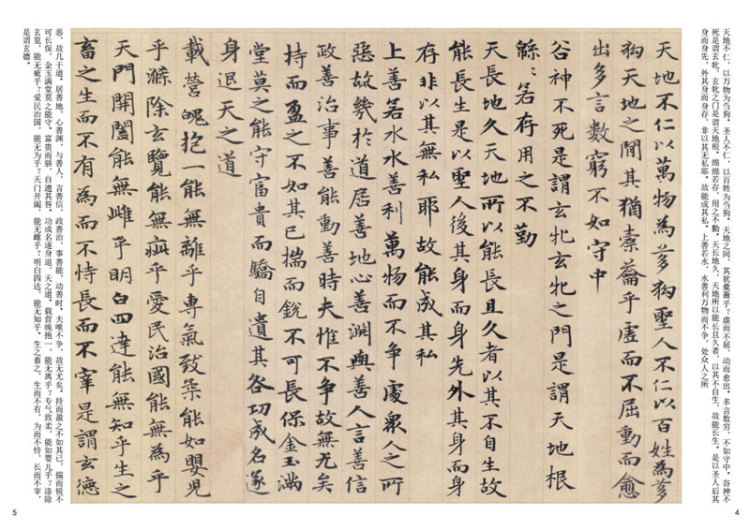 天地不仁，以万物为刍狗。圣人不仁，以百姓为刍狗。天地之间，其犹橐籥乎？虚而不屈，动而愈出。多言数穷，不如守中。谷神不
死是谓玄牝。玄牝之门是谓天地根。绵绵若存，用之不勤。天长地久，天地所以能长且久者，以其不自生，故能长生。是以圣人后其
身而身先，外其身而身存。非以其无私耶。故能成其私。上善若水，水善利万物而不争，处众人之所
天地不仁以萬物為芻狗聖人不仁以百姓為芻
狗天地之間其猶橐籥乎虛而不屈動而愈
出多言數窮不如守中
谷神不死是謂玄牝玄牝之門是謂天地根
緜〻若存用之不勤
天長地久天地所以能長且久者以其不自生故
能長生是以聖人後其身而身先外其身而身
存非以其無私耶故能成其私
上善若水水善利萬物而不争處衆人之所
惡故幾於道居善地心善淵與善人言善信
政善治事善能動善時夫惟不争故無尤矣
持而盈之不如其已揣而銳不可長保金玉滿
堂莫之能守富貴而驕自遺其咎功成名遂
身退天之道
載營魄抱一能無離乎專氣致柔能如嬰兒
乎滌除玄覽能無疵乎愛民治國能無為乎
天門開闔能無雌乎明白四達能無知乎生之
畜之生而不有為而不恃長而不宰是謂玄德
恶，故几于道。居善地，心善渊，与善人，言善信，政善治，事善能，动善时。夫唯不争，故无尤矣。持而盈之不如其已，揣而锐不
可长保，金玉满堂莫之能守。富贵而骄，自遗其咎。功成名遂身退，天之道。载营魄抱一，能无离乎？专气致柔，能如婴儿乎？涤除
玄览，能无疵乎？爱民治国，能无为乎？天门开阖，能无雌乎？明白四达，能无知乎。生之畜之，生而不有，为而不恃，长而不宰，
是谓玄德。
4
5